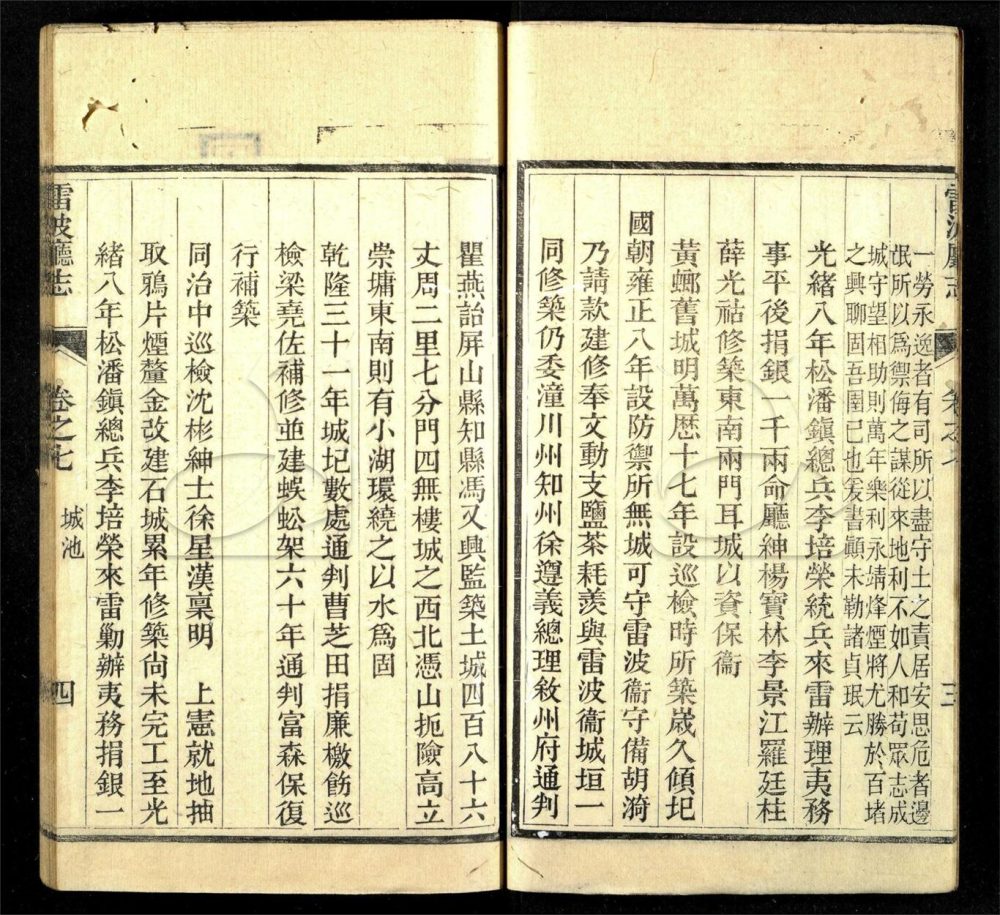 雷波廳志
卷之七
三
一勞永逸者有司所以盡守土之責居安思危者邊
氓所以爲禦侮之謀從來地利不如人和苟眾志成
城守望相助則萬年樂利永靖烽煙將尤勝於百堵
之興聊固吾圉已也爰書顚末勒諸貞珉云
光緒八年松潘鎭總兵李培榮統兵來雷辦理夷務
事平後捐銀一千兩命廳紳楊寶林李景江羅廷桂
薛光祜修築東南兩門耳城以資保衞
黃螂舊城明萬厯十七年設巡檢時所築嵗久傾圮
國朝雍正八年設防禦所無城可守雷波衞守備胡漪
乃請款建修奉文動支鹽茶耗羨與雷波衞城垣一
同修築仍委潼川州知州徐遵義總理敘州府通判
瞿燕詒屏山縣知縣馮乂興監築土城四百八十六
丈周二里七分門四無樓城之西北憑山扼險高立
崇墉東南則有小湖環繞之以水爲固
乾隆三十一年城圮數處通判曹芝田捐廉檄飭巡
檢梁堯佐補修並建蜈蚣架六十年通判富森保復
行補築
同治中巡檢沈彬紳士徐星漢稟明　上憲就地抽
取鴉片煙釐金改建石城累年修築尙未完工至光
緒八年松潘鎭總兵李培榮來雷勦辦夷務捐銀一
雷波廳志
卷之七
城池
四